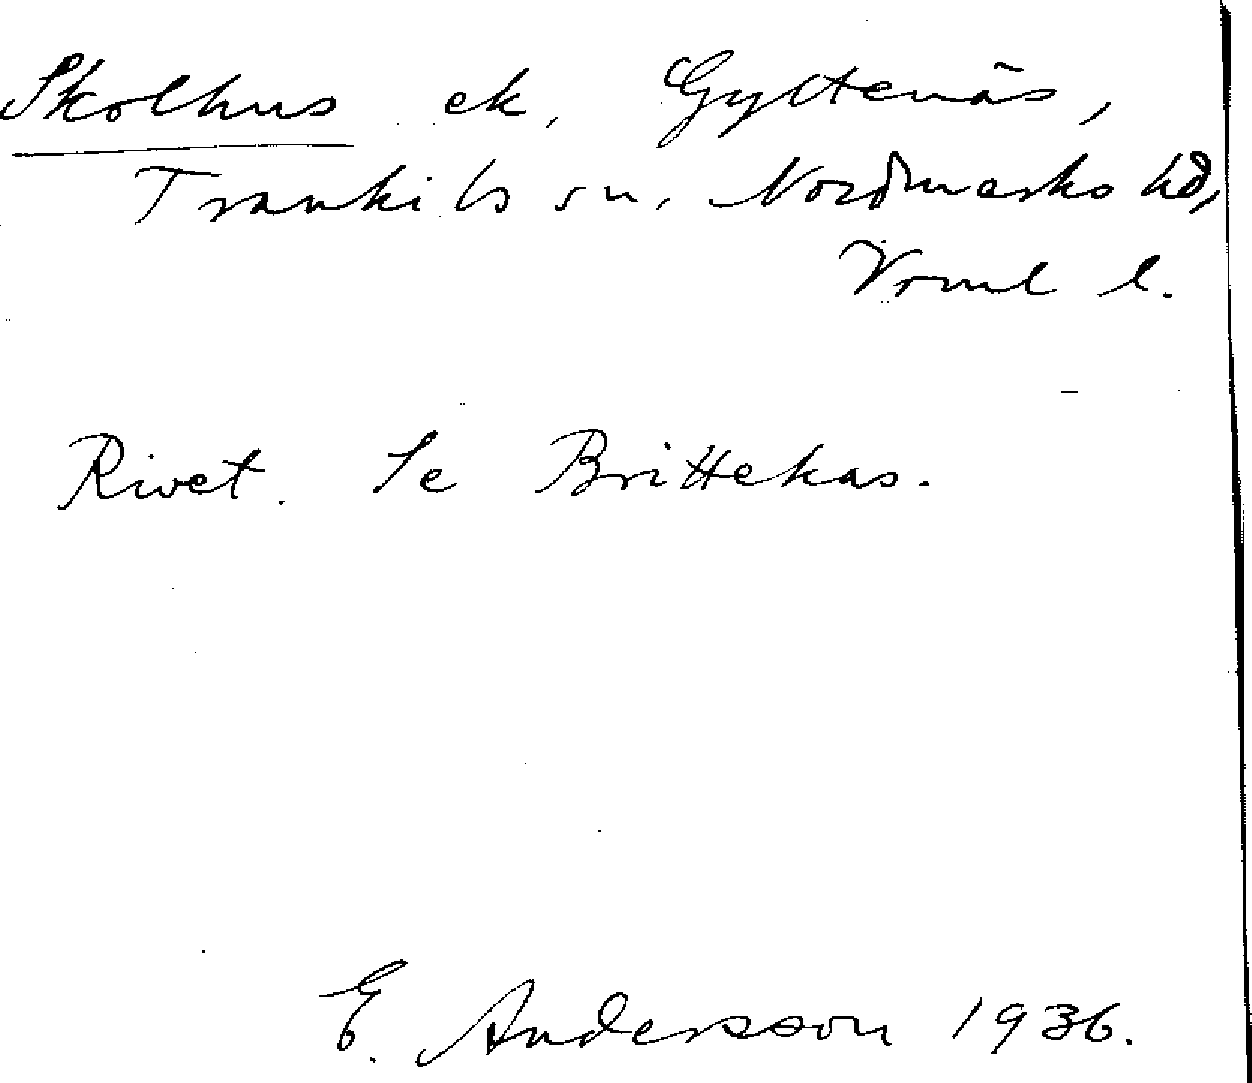 Skolhus ek, Gyltenäs,
Trankils sn, Nordmarks hd,
Vrml l.
Rivet. Se Brittekas.
E. Andersson 1936.